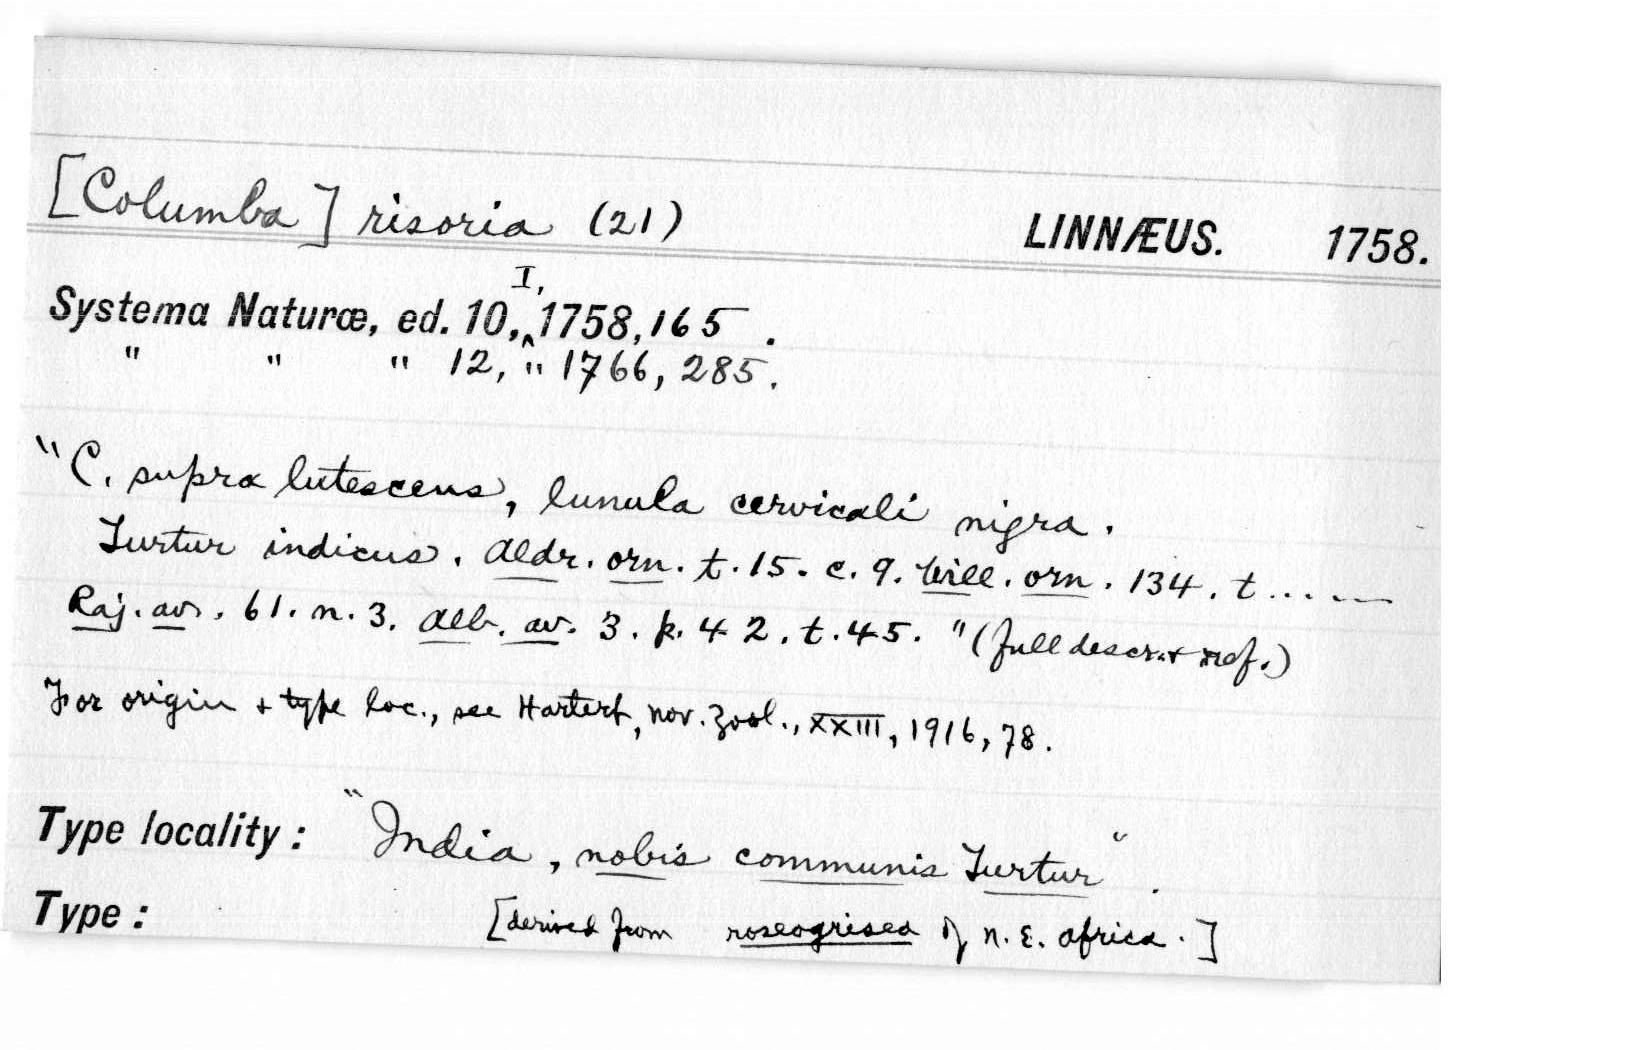 [Columba] risoria (21) LINNÆUS. 1758.
Systema Naturæ, ed. 10, I, 1758, 165.
" " " 12, " 1766, 285.
"C. supra lutescens, lunula cervicali nigra.
Turtur indicus. Aldr. orn. t. 15. c. 9. Will. orn. 134. t.....—
Raj. av. 61. n. 3. Alb. av. 3. p. 42. t. 45. " (full descr. & ref.)
For origin & type loc., see Hartert, Nov. Zool., XXIII, 1916, 78.
Type locality: "India, nobis communis Turtur".
Type: [derived from roseogrisea of N. E. Africa.]